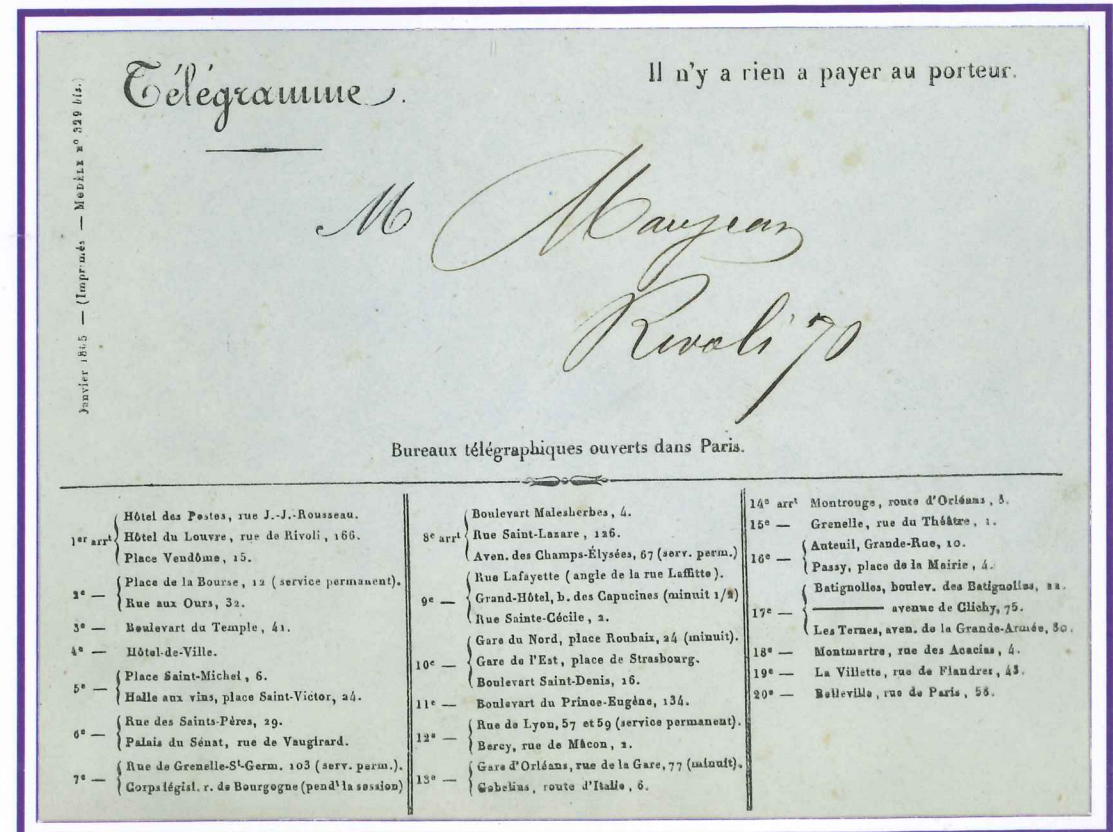 Janvier 1865 — (Imprimés — MODÈLE nº 329 bis.)
Télégramme.
Il n'y a rien a payer au porteur.
M Maujean
Rivoli 70
Bureaux télégraphiques ouverts dans Paris.
1er arrt
Hôtel des Postes, rue J.-J.-Rousseau.
Hôtel du Louvre, rue de Rivoli, 166.
Place Vendôme, 15.
2e —
Place de la Bourse, 12 (service permanent).
Rue aux Ours, 32.
3e — Boulevart du Temple, 41.
4e — Hôtel-de-Ville.
5e —
Place Saint-Michel, 6.
Halle aux vins, place Saint-Victor, 24.
6e —
Rue des Saints-Pères, 29.
Palais du Sénat, rue de Vaugirard.
7e —
Rue de Grenelle-St-Germ. 103 (serv. perm.).
Corps législ. r. de Bourgogne (pendt la session)
8e arrt
Boulevart Malesherbes, 4.
Rue Saint-Lazare, 126.
Aven. des Champs-Élysées, 67 (serv. perm.)
9e —
Rue Lafayette (angle de la rue Laffitte).
Grand-Hôtel, b. des Capucines (minuit 1/2)
Rue Sainte-Cécile, 2.
10e —
Gare du Nord, place Roubaix, 24 (minuit).
Gare de l'Est, place de Strasbourg.
Boulevart Saint-Denis, 16.
11e — Boulevart du Prince-Eugène, 134.
12e —
Rue de Lyon, 57 et 59 (service permanent).
Bercy, rue de Mâcon, 2.
13e —
Gare d'Orléans, rue de la Gare, 77 (minuit).
Gobelins, route d'Italie, 6.
14e arrt Montrouge, route d'Orléans, 8.
15e — Grenelle, rue du Théâtre, 1.
16e —
Auteuil, Grande-Rue, 10.
Passy, place de la Mairie, 4.
17e —
Batignolles, boulev. des Batignolles, 22.
——— avenue de Clichy, 75.
Les Ternes, aven. de la Grande-Armée, 80.
18e — Montmartre, rue des Acacias, 4.
19e — La Villette, rue de Flandres, 43.
20e — Belleville, rue de Paris, 58.